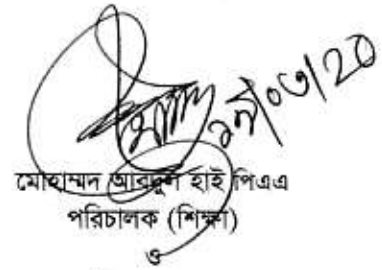 ১৯/০৩/২০
মোহাম্মদ আবদুল হাই পিএএ
পরিচালক (শিক্ষা)
ও